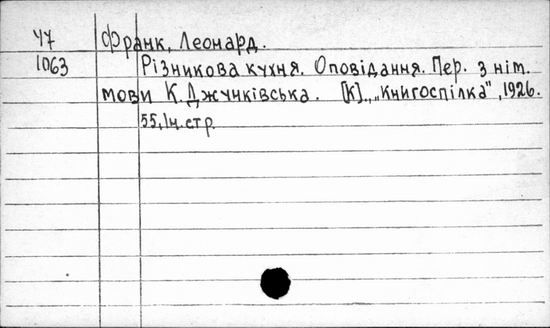 Ч7 Франк, Леонард.
1063 Різникова кухня. Оповідання. Пер. з нім.
мови К. Джунківська. [К]., „Книгоспілка", 1926.
55, Ін. стр.